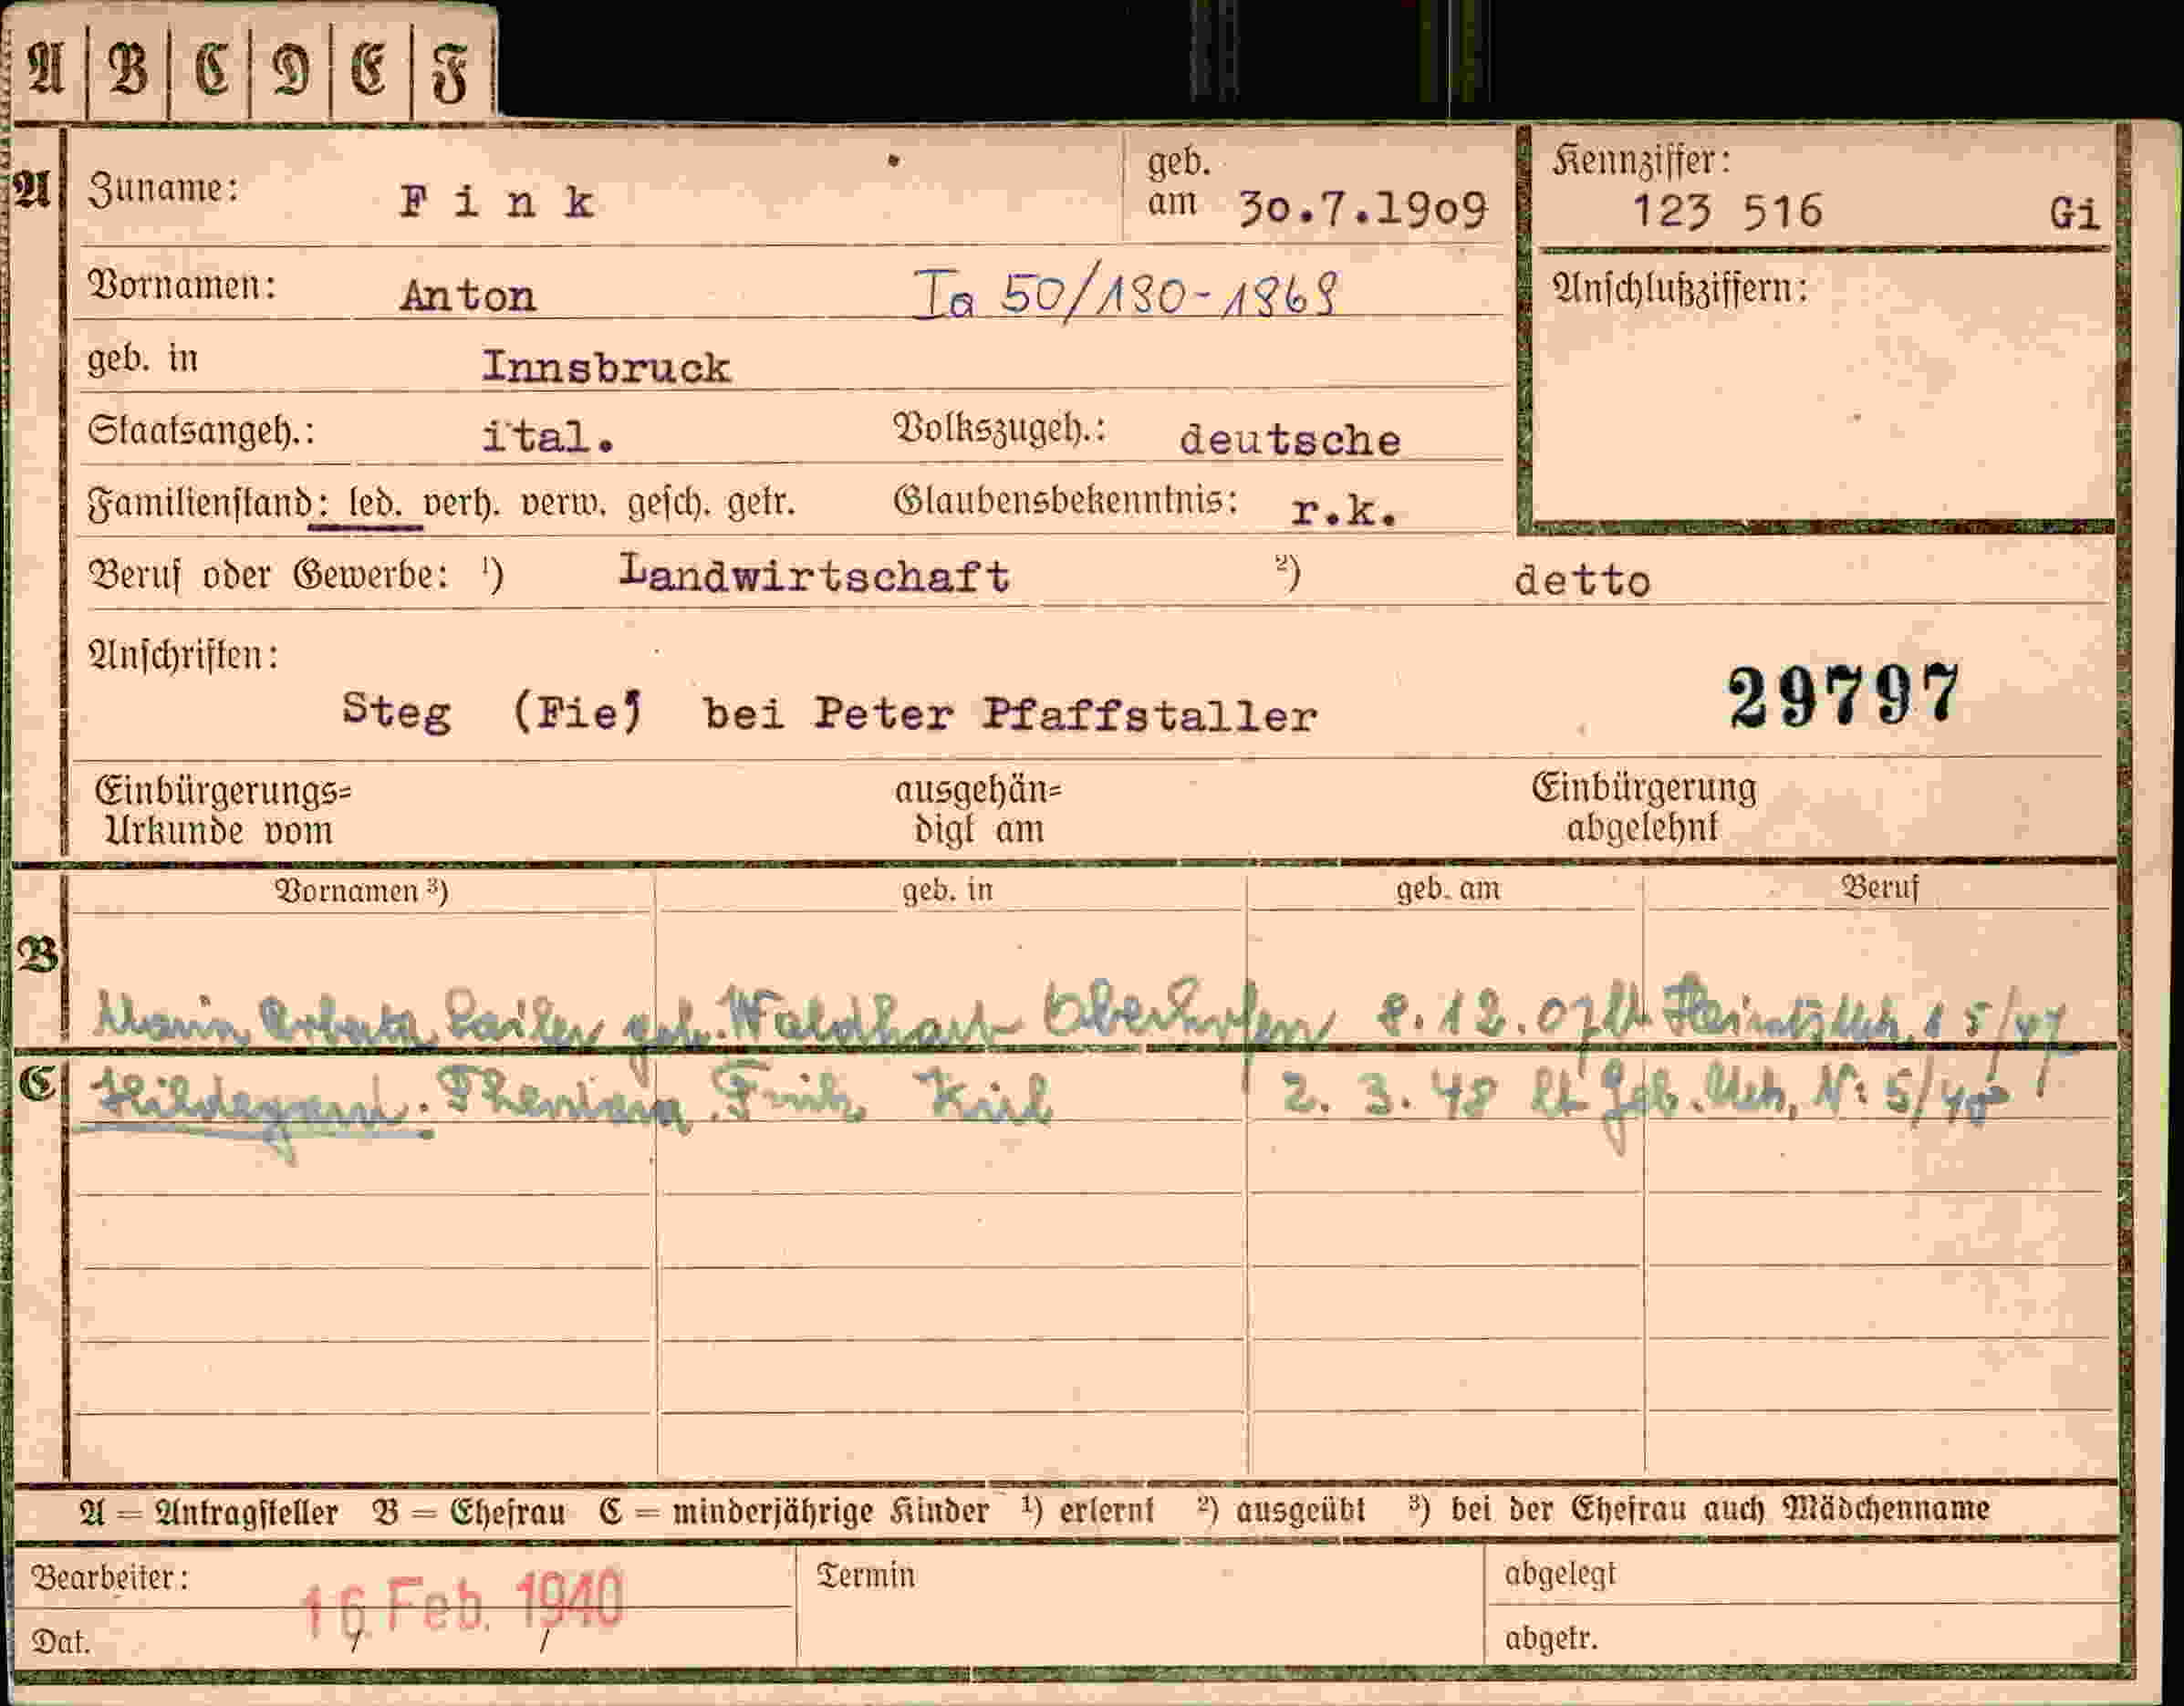 A B C D E F
A Zuname: Fink geb. am 30.7.1909 Kennziffer: 123 516 Gi
Vornamen: Anton Ia 50/190-1969 Anschlußziffern:
geb. in Innsbruck
Staatsangeh.: ital. Volkszugeh.: deutsche
Familienstand: led. verh. verw. gesch. getr. Glaubensbekenntnis: r.k.
Beruf oder Gewerbe: 1) Landwirtschaft 2) detto
Anschriften:
Steg (Fie) bei Peter Pfaffstaller 29797
Einbürgerungs= ausgehän= Einbürgerung
Urkunde vom digt am abgelehnt
Vornamen 3) geb. in geb. am Beruf
B
Maria geb. Waldhart Oberhofen 8.12.07 lt.
C Hildegard. 2. 3. 48 lt Geb. Urk. N: 5/48
A = Antragsteller B = Ehefrau C = minderjährige Kinder 1) erlernt 2) ausgeübt 3) bei der Ehefrau auch Mädchenname
Bearbeiter: 16. Feb. 1940 Termin abgelegt
Dat. / / abgetr.